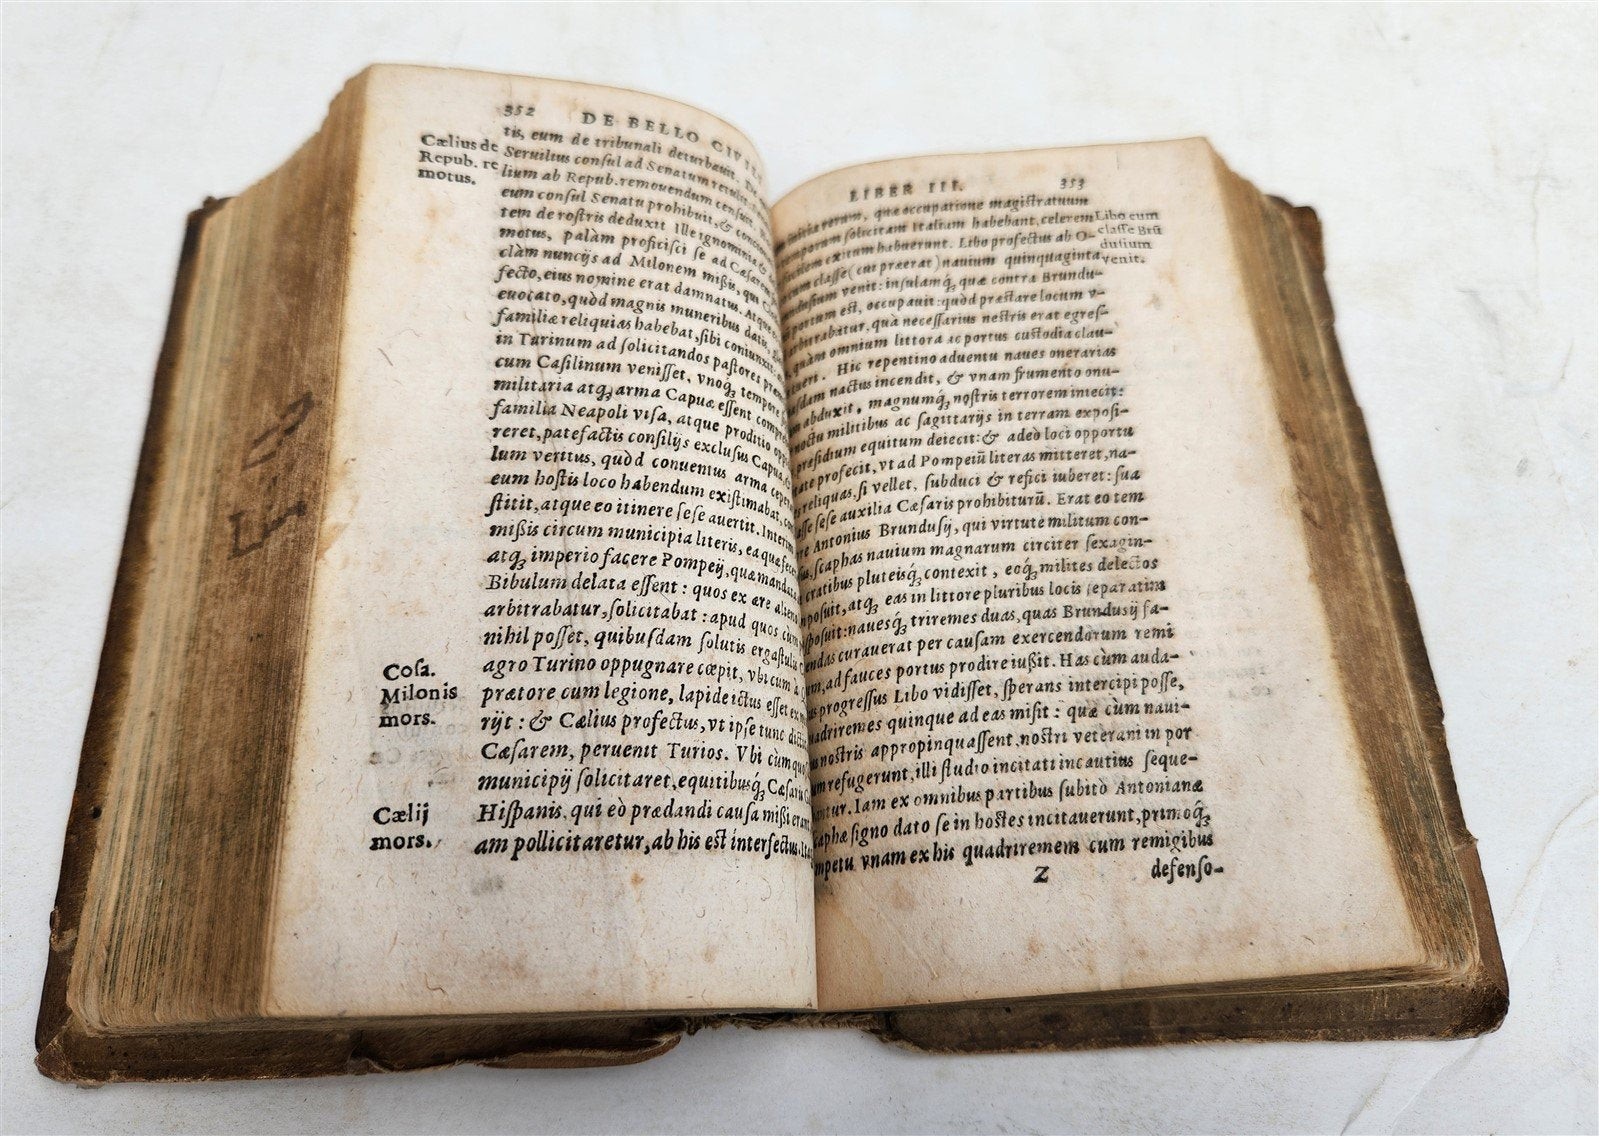 352 DE BELLO CIVI
Cælius de
Repub. re
motus.
tis, eum de tribunali deturbauit.
Seruilius conſul ad Senatum retulit.
lium ab Repub. remouendum cenſuit.
eum conſul Senatu prohibuit, &
tem de roſtris deduxit Ille ignominia &
motus, palàm proficiſci ſe ad Cæſarem
clàm nuncijs ad Milonem mißis, qui
fecto, eius nomine erat damnatus. Atque
euocato, quòd magnis muneribus datis,
familiæ reliquias habebat, ſibi coniunxit:
in Turinum ad ſolicitandos paſtores
cum Caſilinum veniſſet, vnoq́; tempore
militaria atq; arma Capuæ eſſent
familia Neapoli viſa, atque proditio
reret, patefactis conſilijs excluſus Capua,
lum veritus, quòd conuentus arma
eum hoſtis loco habendum exiſtimabat,
ſtitit, atque eo itinere ſeſe auertit. Interim
mißis circum municipia literis, ea quæ
atq; imperio facere Pompeij, quæ mandata
Bibulum delata eſſent : quos ex ære alieno
arbitrabatur, ſolicitabat : apud quos cùm
nihil poſſet, quibuſdam ſolutis ergaſtulis
Coſa.
Milonis
mors.
agro Turino oppugnare cœpit, vbi cùm à
prætore cum legione, lapide ictus eſſet ex
rijt : & Cælius profectus, vt ipſe tunc
Cæſarem, peruenit Turios. Vbi cùm
municipij ſolicitaret, equitibusq́;
Cælij
mors.
Hiſpanis, qui eò prædandi cauſa mißi erant,
am pollicitaretur, ab his eſt interfectus.
LIBER III. 353
initia rerum, quæ occupatione magiſtratuum
temporum ſolicitam Italiam habebant, celerem
exitum habuerunt. Libo profectus ab O-
Libo cum
claſſe Brũ
duſium
venit.
claſſe (cui præerat) nauium quinquaginta
venit : inſulamq́; quæ contra Brundu-
portum eſt, occupauit : quòd præſtare locum v-
arbitrabatur, quà neceſſarius noſtris erat egreſ-
quàm omnium littora ac portus cuſtodia clau-
tueri. Hic repentino aduentu naues onerarias
nactus incendit, & vnam frumento onu-
abduxit, magnumq́; noſtris terrorem iniecit:
noctu militibus ac ſagittarijs in terram expoſi-
præſidium equitum deiecit : & adeò loci opportu
profecit, vt ad Pompeiũ literas mitteret, na-
reliquas, ſi vellet, ſubduci & refici iuberet : ſua
ſeſe auxilia Cæſaris prohibiturũ. Erat eo tem
Antonius Brunduſij, qui virtute militum con-
ſcaphas nauium magnarum circiter ſexagin-
cratibus pluteisq́; contexit, eoq́; milites delectos
atq; eas in littore pluribus locis ſeparatim
nauesq́; triremes duas, quas Brunduſij fa-
curauerat per cauſam exercendorum remi
ad fauces portus prodire iußit. Has cùm auda-
progreſſus Libo vidiſſet, ſperans intercipi poſſe,
quadriremes quinque ad eas miſit : quæ cùm naui-
noſtris appropinquaſſent, noſtri veterani in por
refugerunt, illi ſtudio incitati incautius ſeque-
bantur. Iam ex omnibus partibus ſubitò Antonianæ
ſcaphæ ſigno dato ſe in hoſtes incitauerunt, primoq́;
impetu vnam ex his quadriremem cum remigibus
Z defenſo-